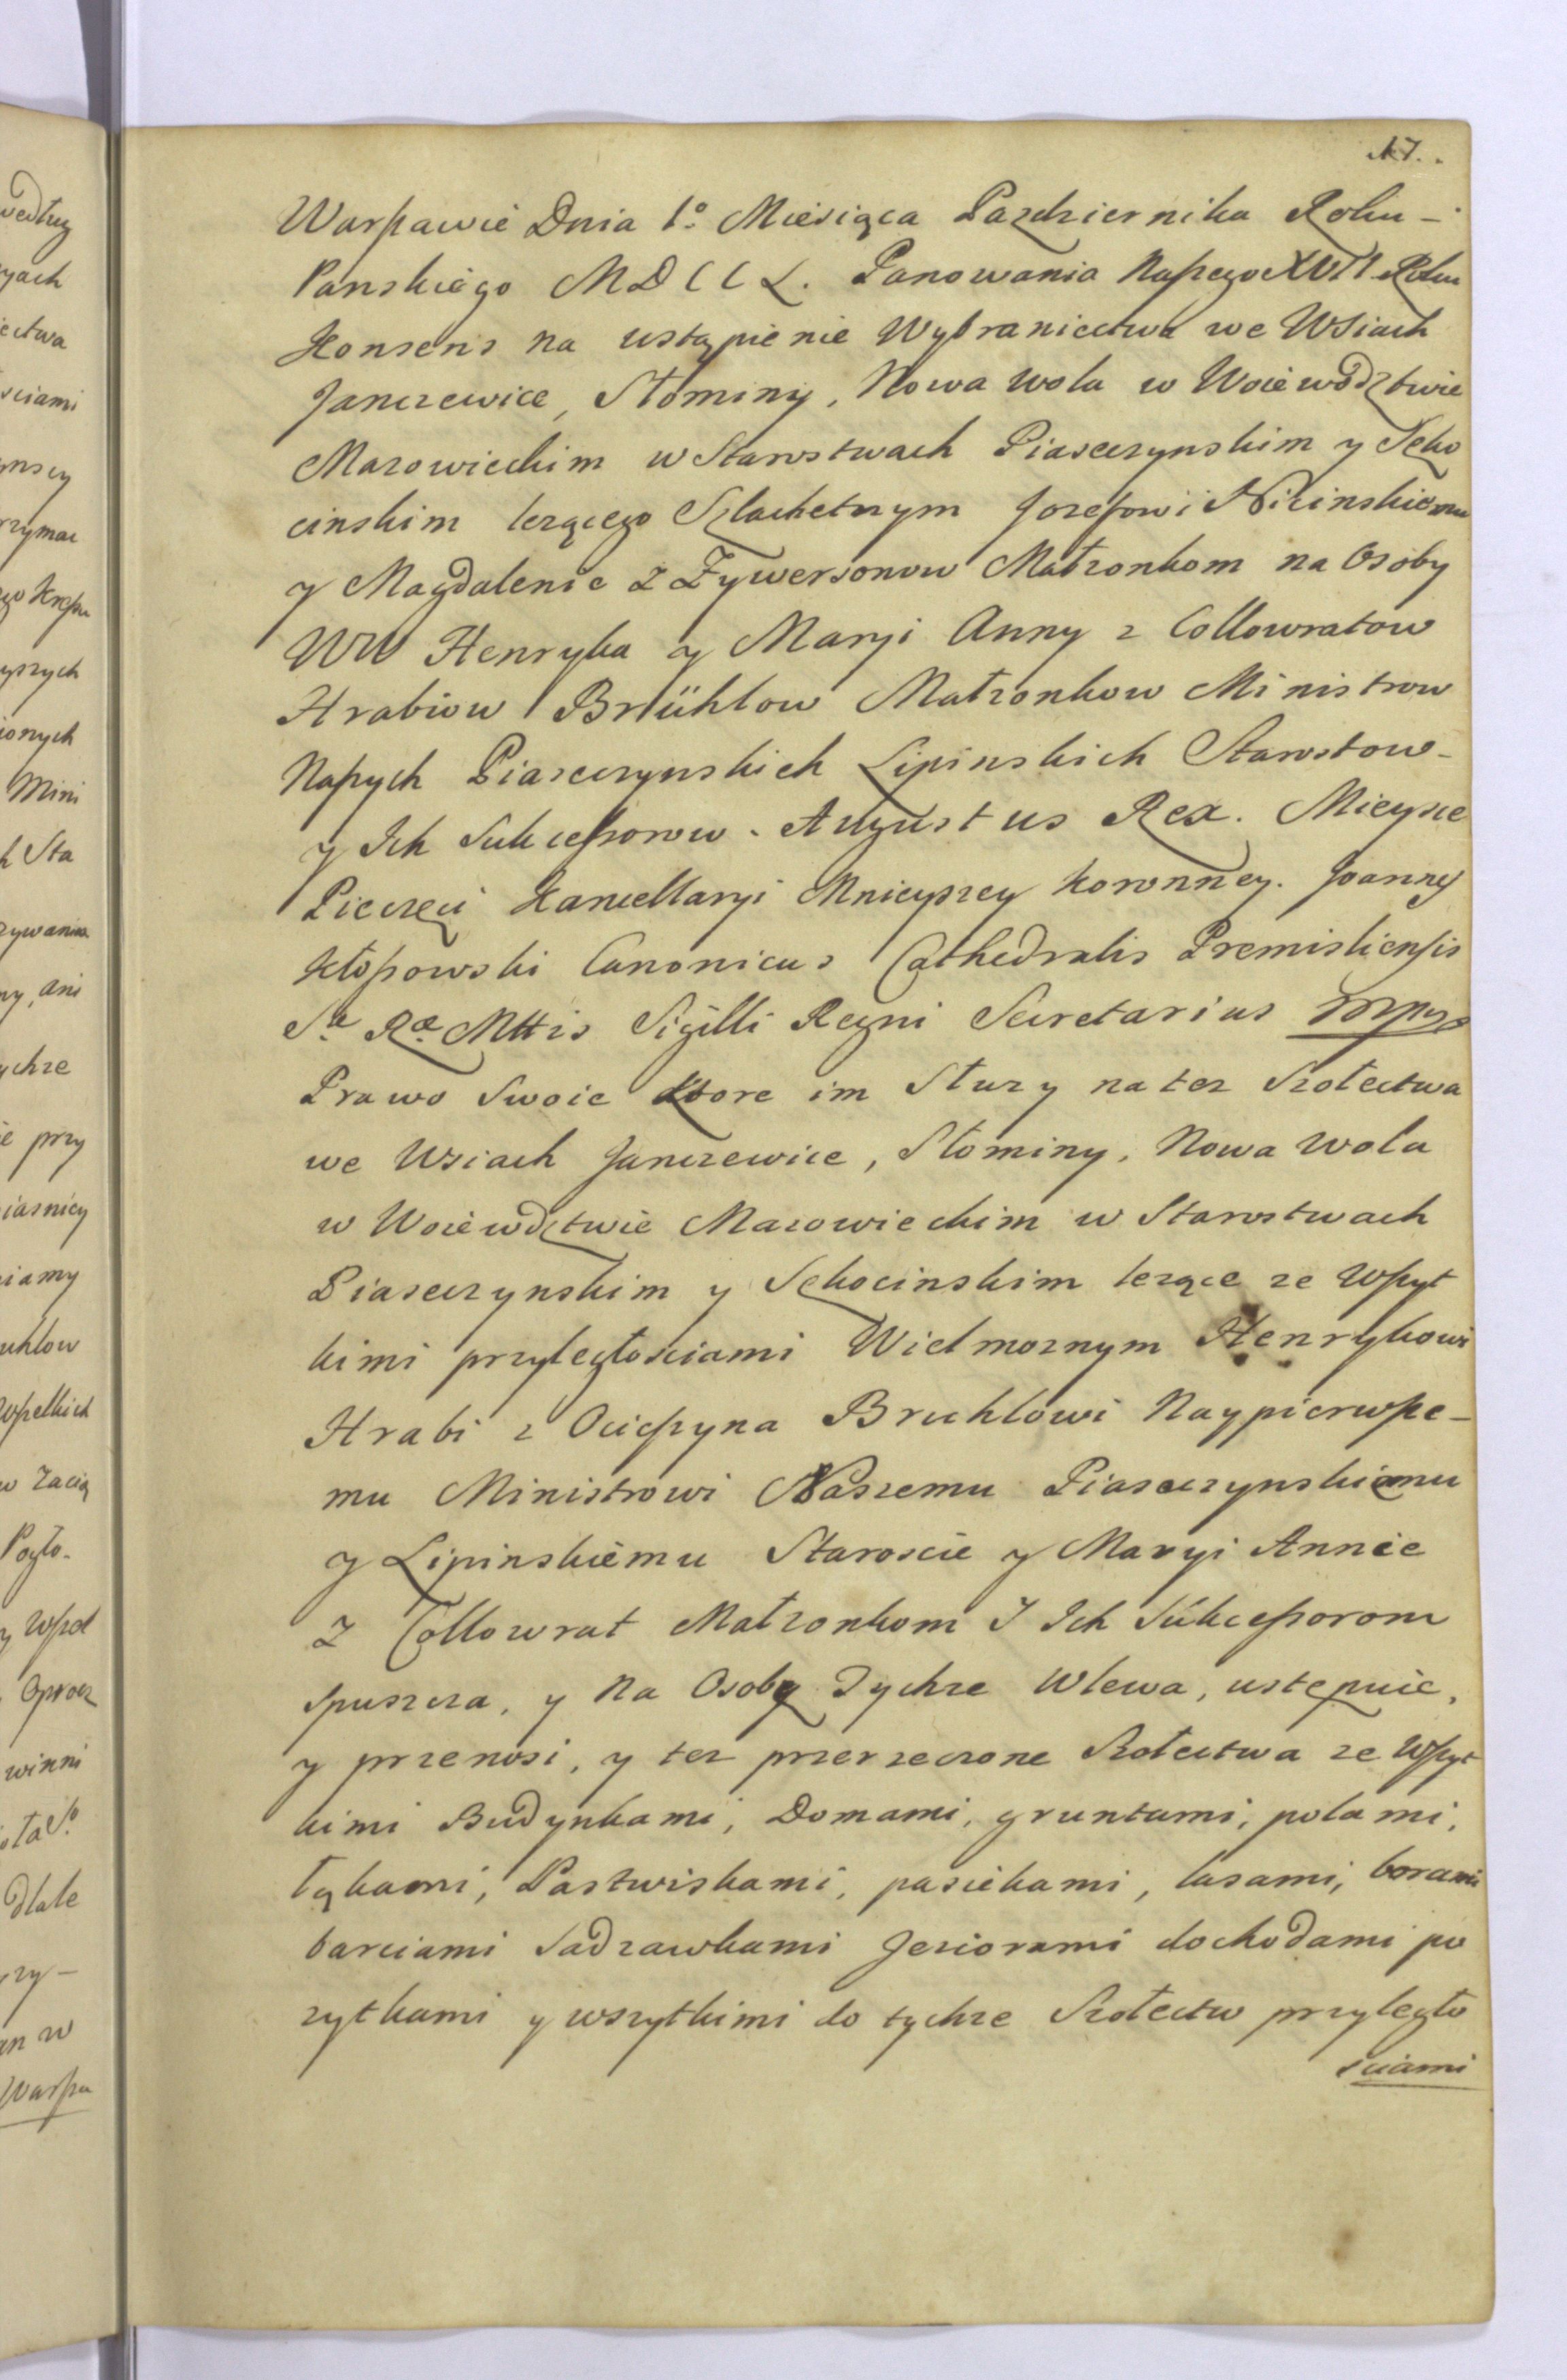 17.
Warszawie Dnia 1o Miesiąca Pazdziernika Roku –
Panskiego MDCCL. Panowania Naszego XVII Roku
Konsens na ustąpienie Wybraniectwa we Wsiach
Janczewice, Słominy, Nowa Wola w Woiewodztwie
Mazowieckim w Starostwach Piaseczynskim y Sęko
cinskim lezącego Szlachetnym Jozefowi Nicinskiemu
y Magdalenie z Zywersonow Małzonkom na Osoby
WW Henryka y Maryi Anny z Collowratow
Hrabiow Brühlow Małzonkow Ministrow
Naszych Piaseczynskich Lipinskich Starostow –
y Ich Sukcessorow. Augustus Rex. Mieysce
Pieczęci Kancellaryi Mnieyszey Koronney. Joannes
Kłopowski Canonicus Cathedralis Premisliensis
Sæ Ræ Mttis Sigilli Regni Secretarius mpp
Prawo Swoie ktore im Słuzy na tez Szołectwa
we Wsiach Janczewice, Słominy, Nowa Wola
w Woiewdztwie Mazowieckim w Starostwach
Piaseczynskim y Sękocinskim lezące ze Wszyt
kimi przyległościami Wielmoznym Henrykowi
Hrabi z Ocieszyna Bruhlowi Naypierwsze –
mu Ministrowi Naszemu Piaseczynskiemu
y Lipinskiemu Staroscie y Maryi Annie
z Collowrat Małzonkom I Ich Sukcessorom
spuszcza, y na Osoby Tychze Wlewa, ustępuie,
y przenosi, y tez przerzeczone Szołectwa ze Wszyt
kimi Budynkami, Domami, gruntami, polami,
łąkami, Pastwiskami, pasiekami, lasami, borami
barciami Sadzawkami Jeziorami dochodami po
zytkami y wszytkimi do tychze Szołectw przyległo
sciami